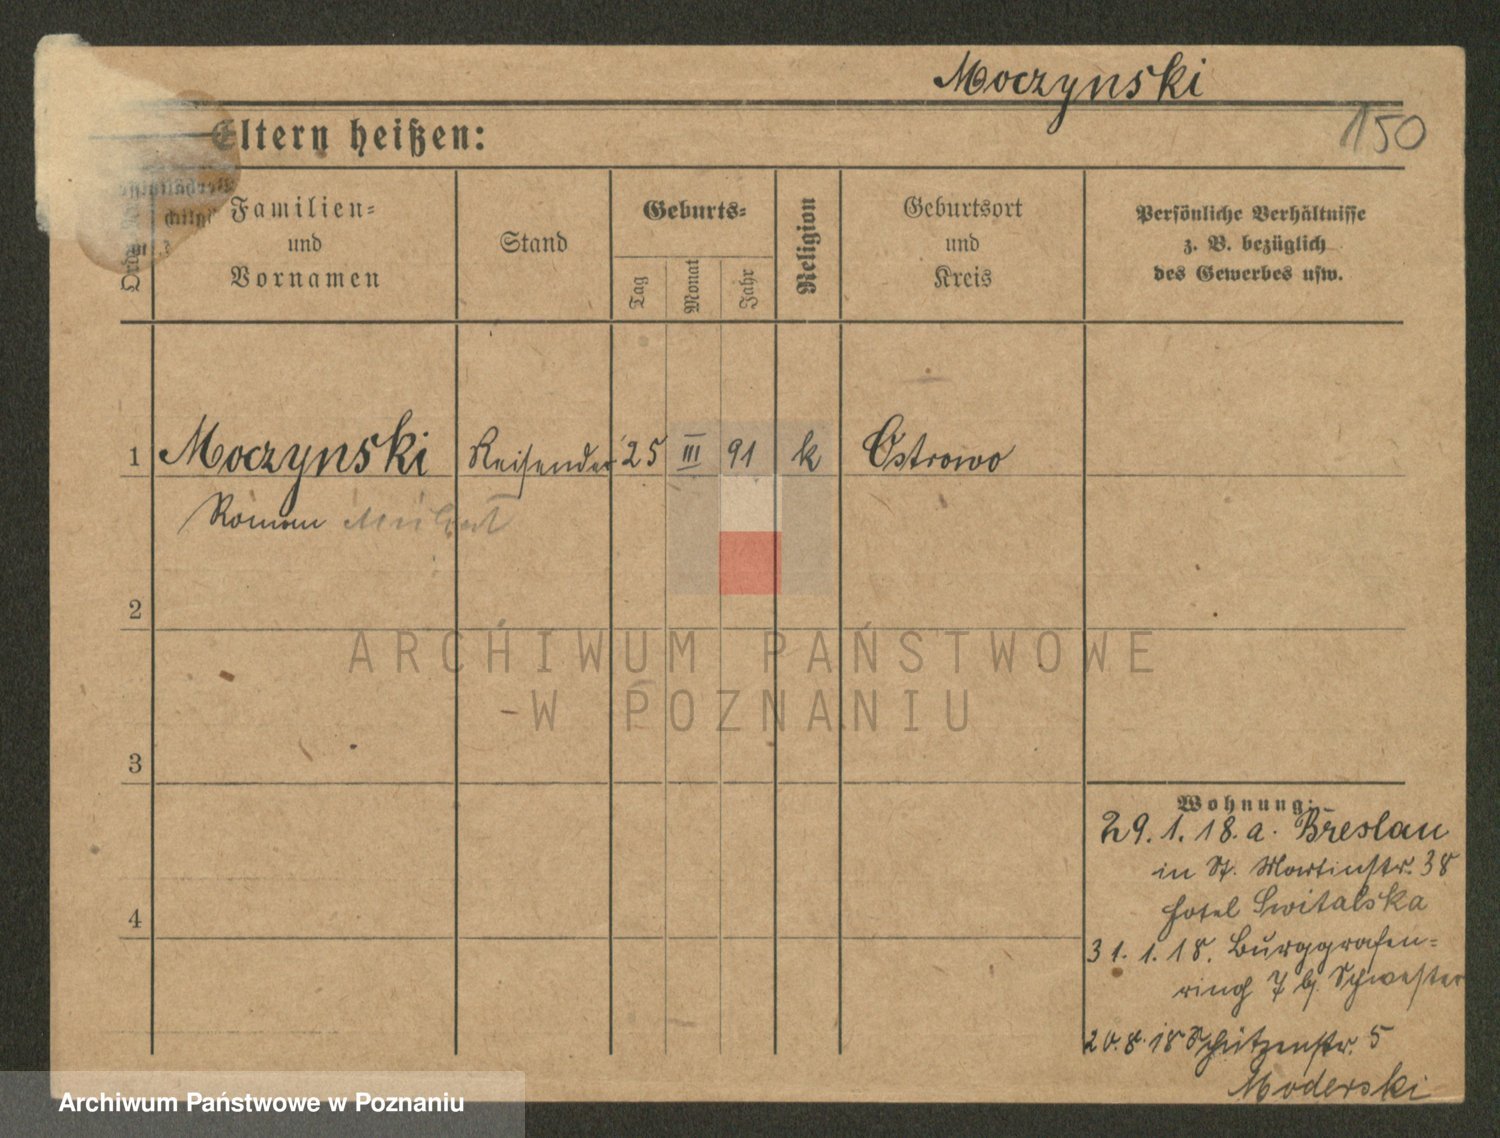 Moczynski
150
Eltern heißen:
Familien=
und
Vornamen
Stand
Geburts=
Tag
Monat
Jahr
Religion
Geburtsort
und
Kreis
Persönliche Verhältnisse
z. B. bezüglich
des Gewerbes usw.
1 Moczynski Reisender 25 III 91 k Ostrowo
Roman
2
3
4
Wohnung:
29. 1. 18. a. Breslau
in St. Martinstr. 38
Hotel Switalska
31. 1. 18. Burggrafen=
ring 7 b. Schwester
20. 8. 18 Schützenstr. 5
Moderski
ARCHIWUM PAŃSTWOWE
W POZNANIU
Archiwum Państwowe w Poznaniu